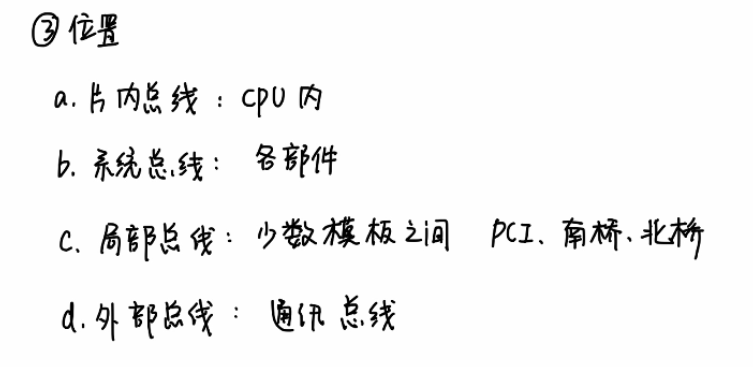 ③ 位置
a. 片内总线：CPU内
b. 系统总线： 各部件
c. 局部总线：少数模板之间 PCI、南桥、北桥
d. 外部总线： 通讯总线